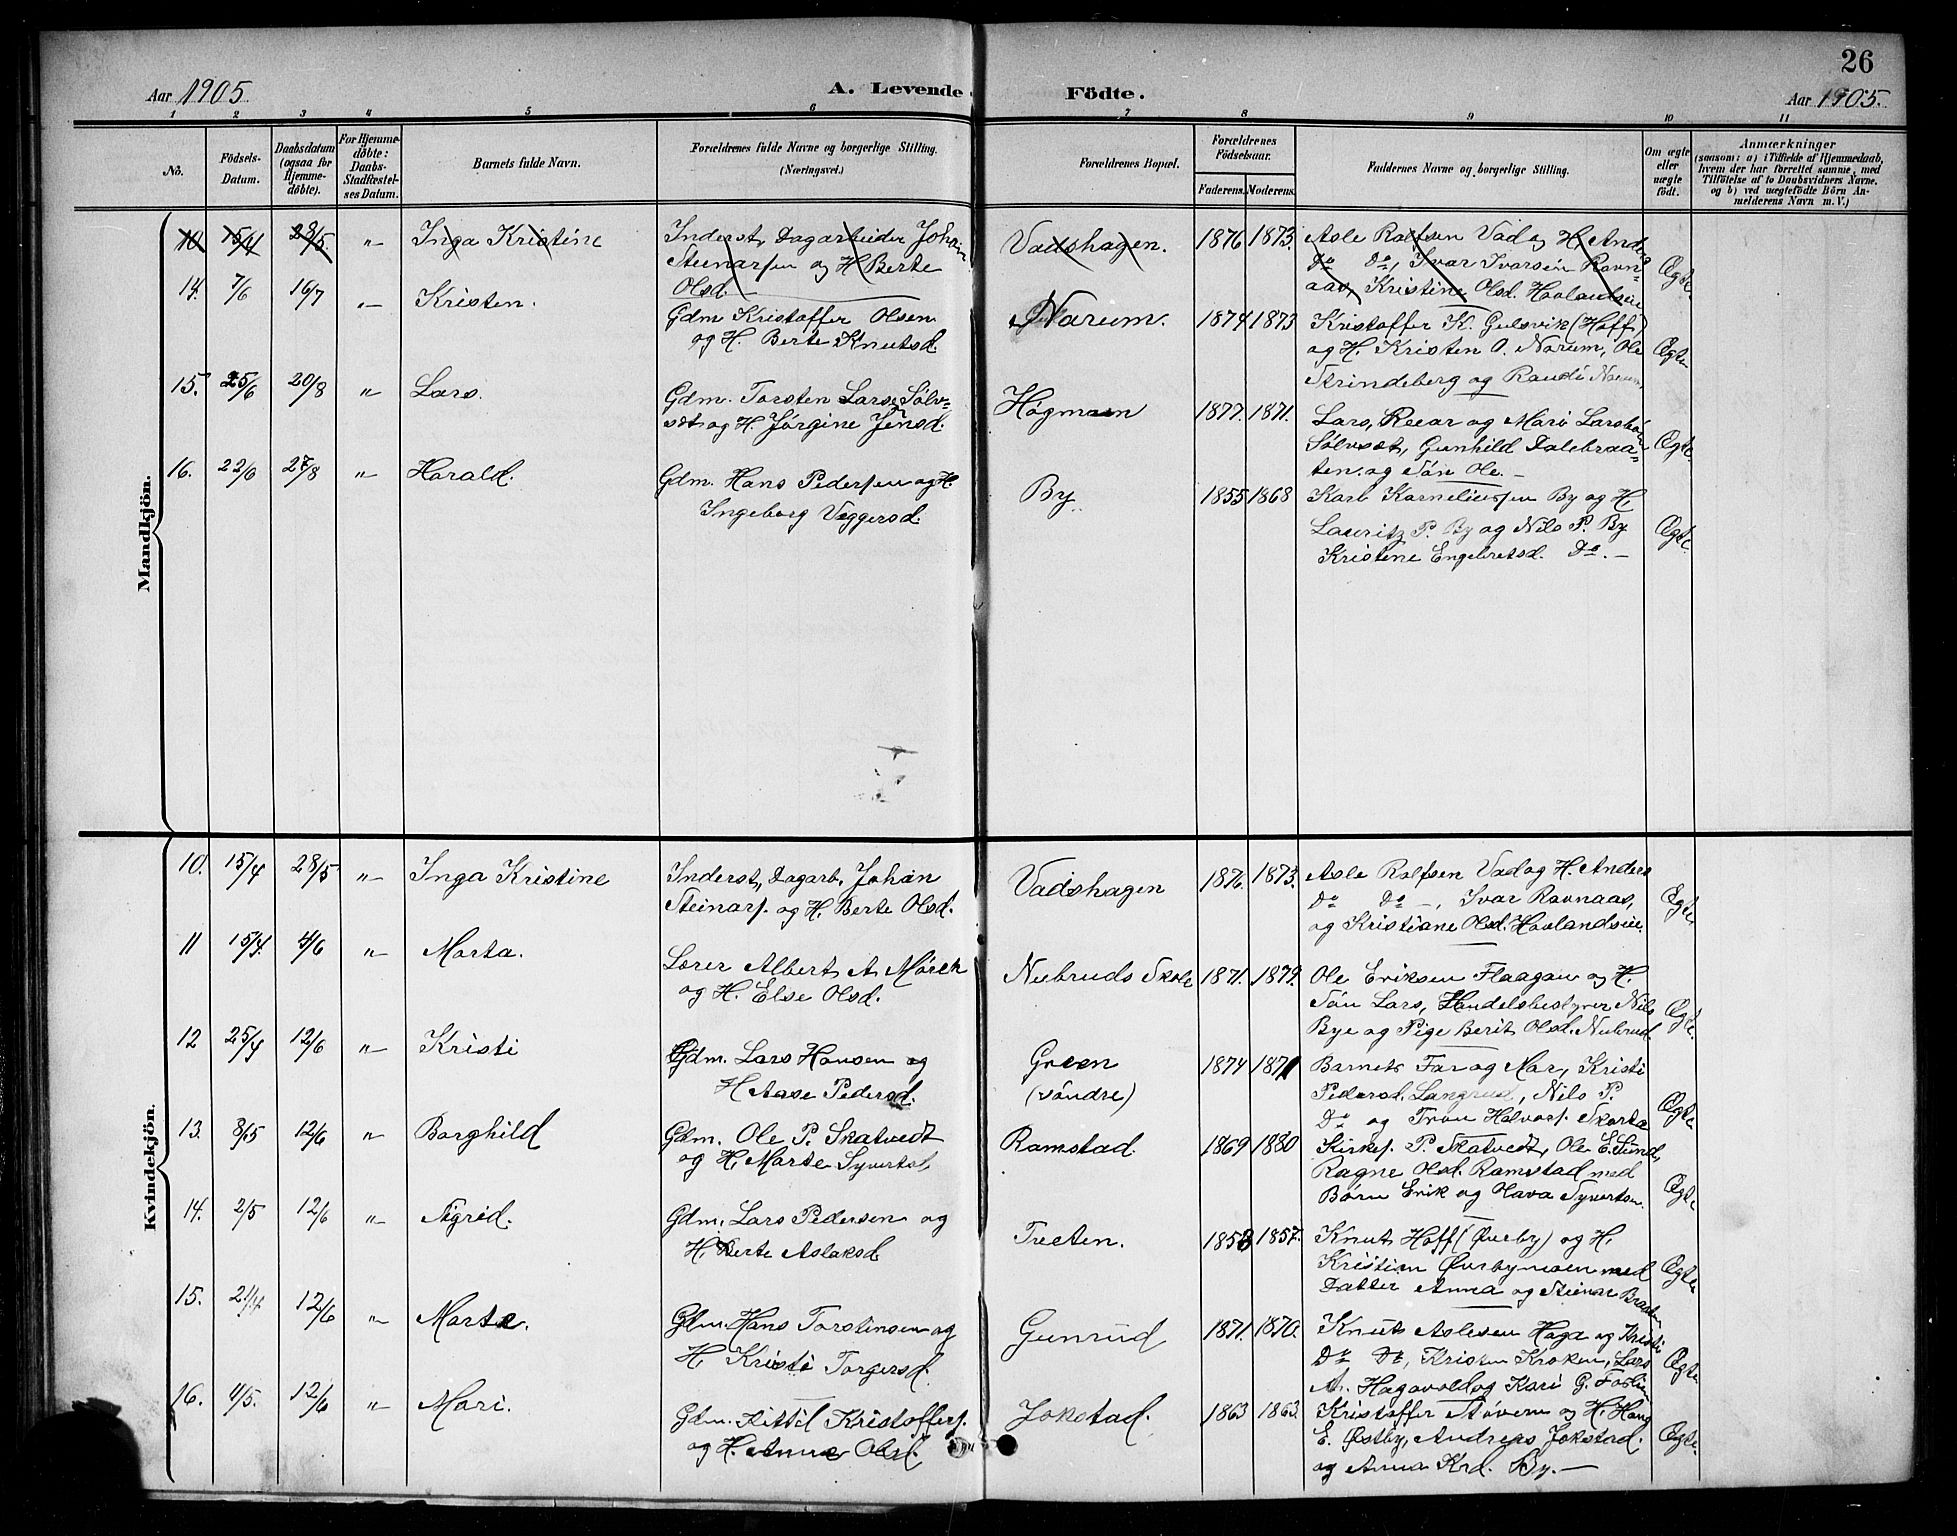 26
Aar 1905. A. Levende Födte. Aar 1905.
1 2 3 4 5 6 7 8 9 10 11
No. Födsels-Datum. Daabsdatum (ogsaa for Hjemmedöbte). For Hjemmedöbte: Daabs-Stadfæstelses Datum. Barnets fulde Navn. Forældrenes fulde Navne og borgerlige Stilling. (Næringsvei.) Forældrenes Bopæl. Forældrenes Födselsaar. Faderens. Moderens. Faddernes Navne og borgerlige Stilling. Om ægte eller uægte födt. Anmærkninger (saasom: a) i Tilfælde af Hjemmedaab, hvem der har forrettet samme, med Tilföielse af to Daabsvidners Navne, og b) ved uægtefödte Börn Anmelderens Navn m. V.)
Mandkjön.
10 15/4 28/5 " Inga Kristine Inderst, Dagarbeider Johan Vadshagen. 1876 1873. Asle Rolfsen Vad og H. Anders
Steinarsen og H. Berte Do Do, Ivar Ivarsen Ravn-
Olsd. aas, Kristine Olsd. Havlandseie Ægte
14. 7/6 16/7 " Kristen. Gdm Kristoffer Olsen Narum. 1874 1873 Kristoffer K. Gulsvik (Hoff)
og H. Berte Knutsd. og H. Kristen O. Narum, Ole Ægte
Strindeberg og Randi Narum
15. 25/6 20/8 " Lars. Gdm. Torsten Larss Sølv- Høgmaen 1877. 1871. Lars, Reiar og Mari
sæt og H. Jørgine Jensd. Sølvsæt, Gunhild Dalebraa- Ægte.
ten. og Søn Ole. –
16. 27/8 " Harald. Gdm. Hans Pedersen og H. By. 1855 1868 Karl Korneliussen By og H.
Ingeborg Veggersd. Lauritz P. By og Nils P. By Ægte.
Kristine Engebretsd. Do. –
Kvindekjön.
10. 15/4 28/5 " Inga Kristine Inderst, Dagarb. Johan Vadshagen 1876. 1873. Asle Rolfsen Vad og H. Anders
Steinars. og H. Berte Olsd. Do Do –, Ivar Ravnaas, Ægte
og Kristiane Olsd. Havlandseie.
11 15/4. 4/6 " Marta. Lærer Albert A. Mørch Nubruds Skole 1871. 1879. Ole Eriksen Flaagan og H.
og H. Else Olsd. Søn Lars, Handelsbestyrer Nils Ægte.
Bye og Pige Berit Olsd. Nubrud.
12 25/4 12/6 " Kristi Gdm. Lars Hansen og Green 1874 1871 Barnets Far og Mor, Kristi
H Aase Pedersd. (søndre) Pedersd. Langrud, Nils P. Ægte
Do og Tron Halvors. Skarta
13. 8/5 12/6 " Borghild Gdm. Ole P. Skatvedt Ramstad. 1869 1880 Kirkes. P. Skatvedt, Ole E. Lund,
og H. Marte Syverts. Ragne Olsd. Ramstad med Ægte.
Børn Erik og Olava Syvertsn.
14. 2/5 12/6 " Sigrid. Gdm. Lars Pedersen og Treeten. 1853 1857. Knut Hoff (Øvrby) og H.
H. Berte Aslaksd Kristian Øvrbymoen med Ægte.
Datter Anna og Steinar Braaten
15. 12/6 " Marte. Gdm. Hans Torstensen og Gunrud 1871. 1870. Knut Aslesen Haga og Kristi
H. Kristi Torgersd. Do Do, Kristen Kroken, Lars Ægte
A. Hagavold og Kari G. Foslien
16. 4/5. 12/6 " Mari. Gdm. Kittil Kristoffers. Jokstad. 1863 1863. Kristoffer Støvern og H. Hans
og H. Anne Olsd. E. Østby, Andreas Jokstad. Ægte.
og Anna Krd. By. –